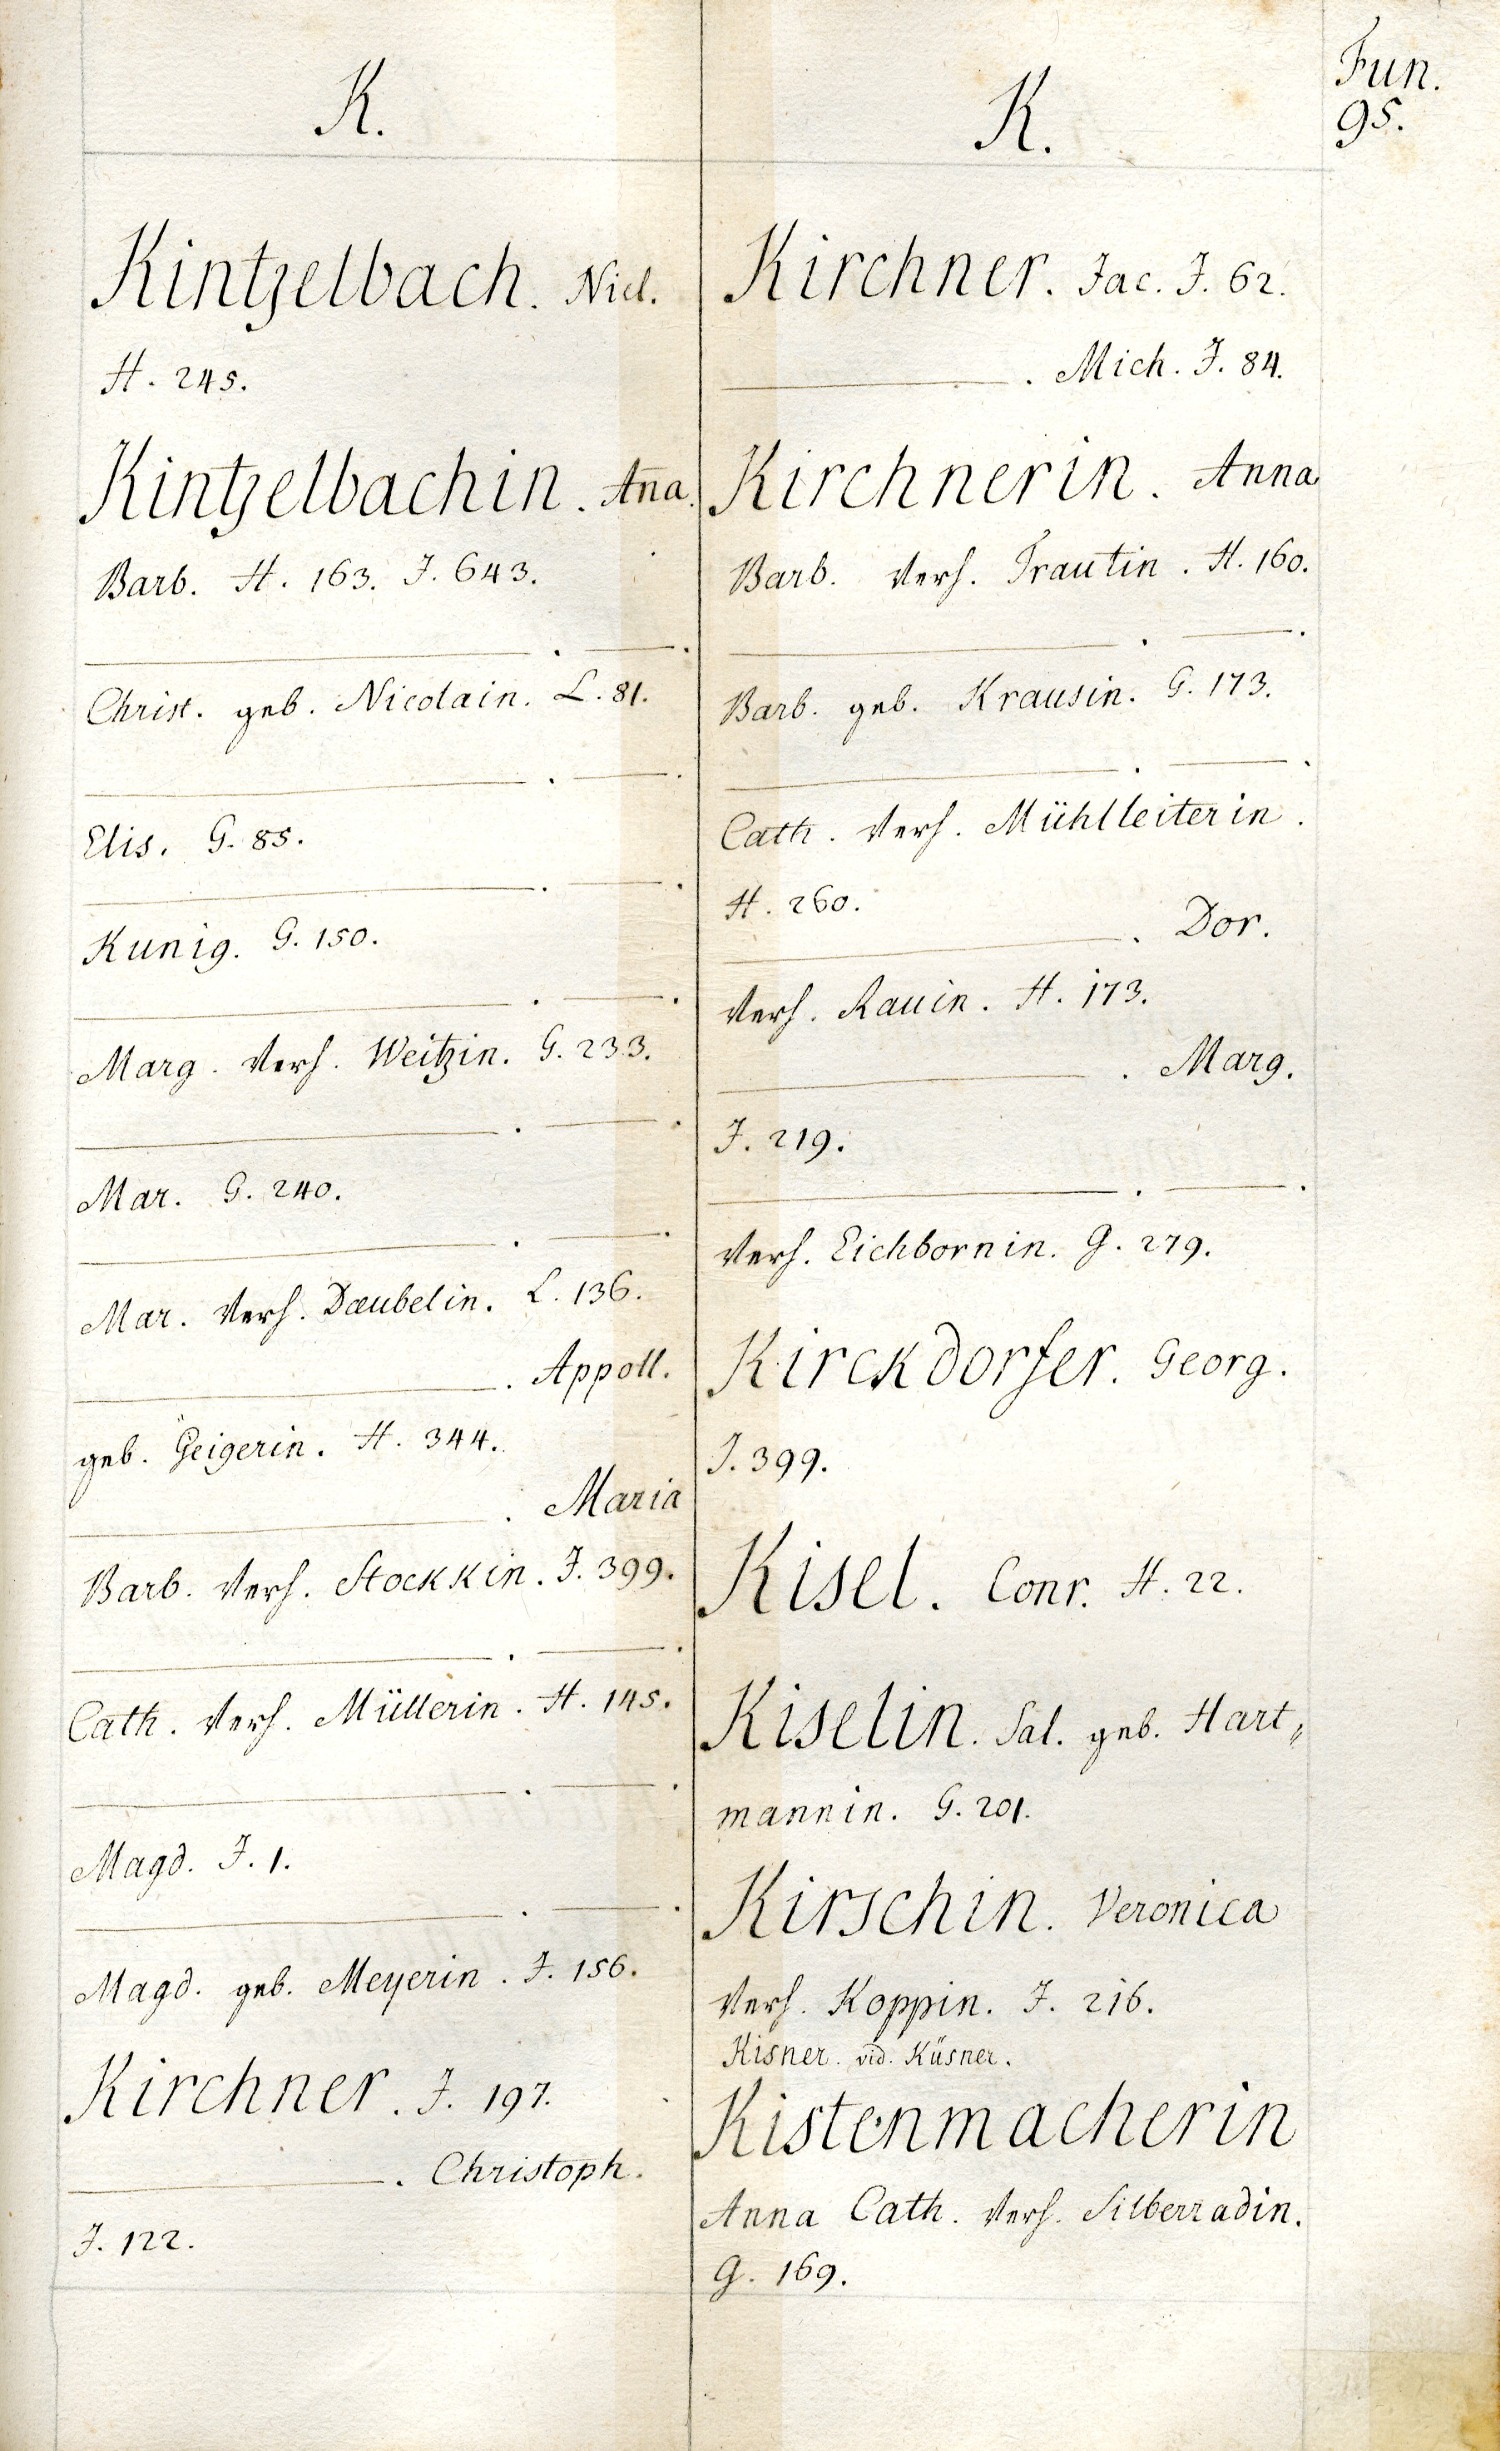 Fun.
95.
K.
Kintzelbach. Nicl.
H. 245.
Kintzelbachin. Aña.
Barb. H. 163. J. 643.
Christ. geb. Nicolain. L. 81.
Elis. G. 85.
Kunig. G. 150.
Marg. Verh. Weitzin. G. 233.
Mar. G. 240.
Mar. Verh. Dæubelin. L. 136.
. Appoll.
geb. Geigerin. H. 344.
. Maria
Barb. Verh. Stockkin. J. 399.
Cath. Verh. Müllerin. H. 145.
Magd. J. 1.
Magd. geb. Meyerin. J. 156.
Kirchner. J. 197.
. Christoph.
J. 122.
K.
Kirchner. Jac. J. 62.
. Mich. J. 84.
Kirchnerin. Anna
Barb. Verh. Trautin. H. 160.
Barb. geb. Krausin. G. 173.
Cath. Verh. Mühlleiterin.
H. 260.
. Dor.
Verh. Rauin. H. 173.
. Marg.
J. 219.
Verh. Eichbornin. G. 279.
Kirckdorfer. Georg.
J. 399.
Kisel. Conr. H. 22.
Kiselin. Sal. geb. Hart„
mannin. G. 201.
Kirschin. Veronica
Verh. Koppin. J. 216.
Kisner. vid. Küsner.
Kistenmacherin
Anna Cath. Verh. Silberradin.
G. 169.